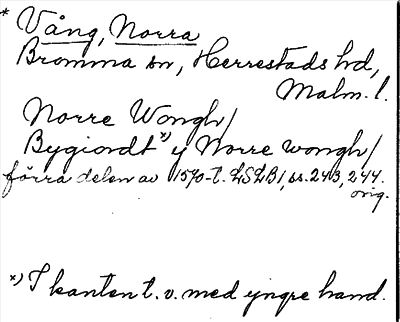 * Vång, Norra
Bromma sn, Herrestads hd,
Malm. l.
Norre Wongh/
Bygiordt *) y Norre wongh/
förra delen av 1570-t. LSLB1, ss. 243, 244.
orig.
*) I kanten t. v. med yngre hand.